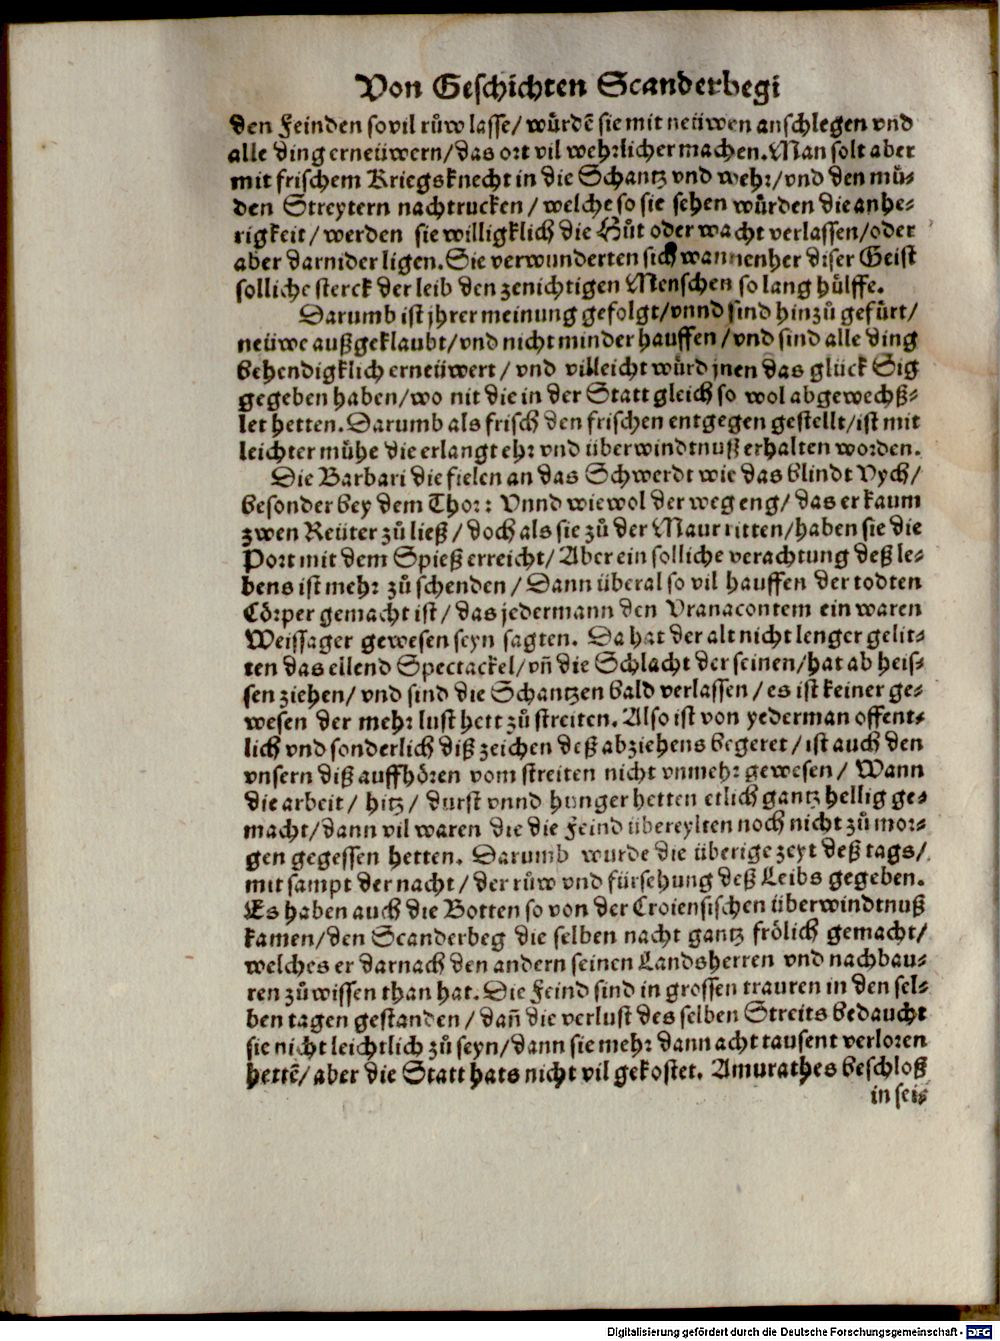 Von Geschichten Scanderbegi
den Feinden so vil růw lasse/ würdẽ sie mit neüwen anschlegen vnd
alle ding erneüwern/ das ort vil wehrlicher machen. Man solt aber
mit frischem Kriegsknecht in die Schantz vnd wehr/ vnd den mü⸗
den Streytern nachtrucken/ welche so sie sehen würden die anhe⸗
rigkeit/ werden sie willigklich die Hůt oder wacht verlassen/ oder
aber darnider ligen. Sie verwunderten sich wannenher diser Geist
solliche sterck der leib den zenichtigen Menschen so lang hülffe.
Darumb ist jhrer meinung gefolgt/ vnnd sind hinzů gefürt/
neüwe außgeklaubt/ vnd nicht minder hauffen/ vnd sind alle ding
behendigklich erneüwert/ vnd villeicht würd jnen das glück Sig
gegeben haben/ wo nit die in der Statt gleich so wol abgewechß⸗
let hetten. Darumb als frisch den frischen entgegen gestellt/ ist mit
leichter mühe die erlangt ehr vnd überwindtnuß erhalten worden.
Die Barbari die fielen an das Schwerdt wie das blindt Vych/
besonder bey dem Thor: Vnnd wiewol der weg eng/ das er kaum
zwen Reüter zů ließ/ doch als sie zů der Maur ritten/ haben sie die
Port mit dem Spieß erreicht/ Aber ein solliche verachtung deß le⸗
bens ist mehr zů schenden/ Dann überal so vil hauffen der todten
Cörper gemacht ist/ das jedermann den Vranacontem ein waren
Weissager gewesen seyn sagten. Da hat der alt nicht lenger gelit⸗
ten das ellend Spectackel/ vñ die Schlacht der seinen/ hat ab heis⸗
sen ziehen/ vnd sind die Schantzen bald verlassen/ es ist keiner ge⸗
wesen der mehr lust hett zů streiten. Also ist von yederman offent⸗
lich vnd sonderlich diß zeichen deß abziehens begeret/ ist auch den
vnsern diß auffhören vom streiten nicht vnmehr gewesen/ Wann
die arbeit/ hitz/ durst vnnd hunger hetten etlich gantz hellig ge⸗
macht/ dann vil waren die die Feind übereylten noch nicht zů mor⸗
gen gegessen hetten. Darumb wurde die überige zeyt deß tags/
mit sampt der nacht/ der růw vnd fürsehung deß Leibs gegeben.
Es haben auch die Botten so von der Croiensischen überwindtnuß
kamen/ den Scanderbeg die selben nacht gantz frölich gemacht/
welches er darnach den andern seinen Landsherren vnd nachbau⸗
ren zůwissen than hat. Die Feind sind in grossen trauren in den sel⸗
ben tagen gestanden/ dañ die verlust des selben Streits bedaucht
sie nicht leichtlich zů seyn/ dann sie mehr dann acht tausent verloren
hettẽ/ aber die Statt hats nicht vil gekostet. Amurathes beschloß
in sei⸗
Digitalisierung gefördert durch die Deutsche Forschungsgemeinschaft - DFG